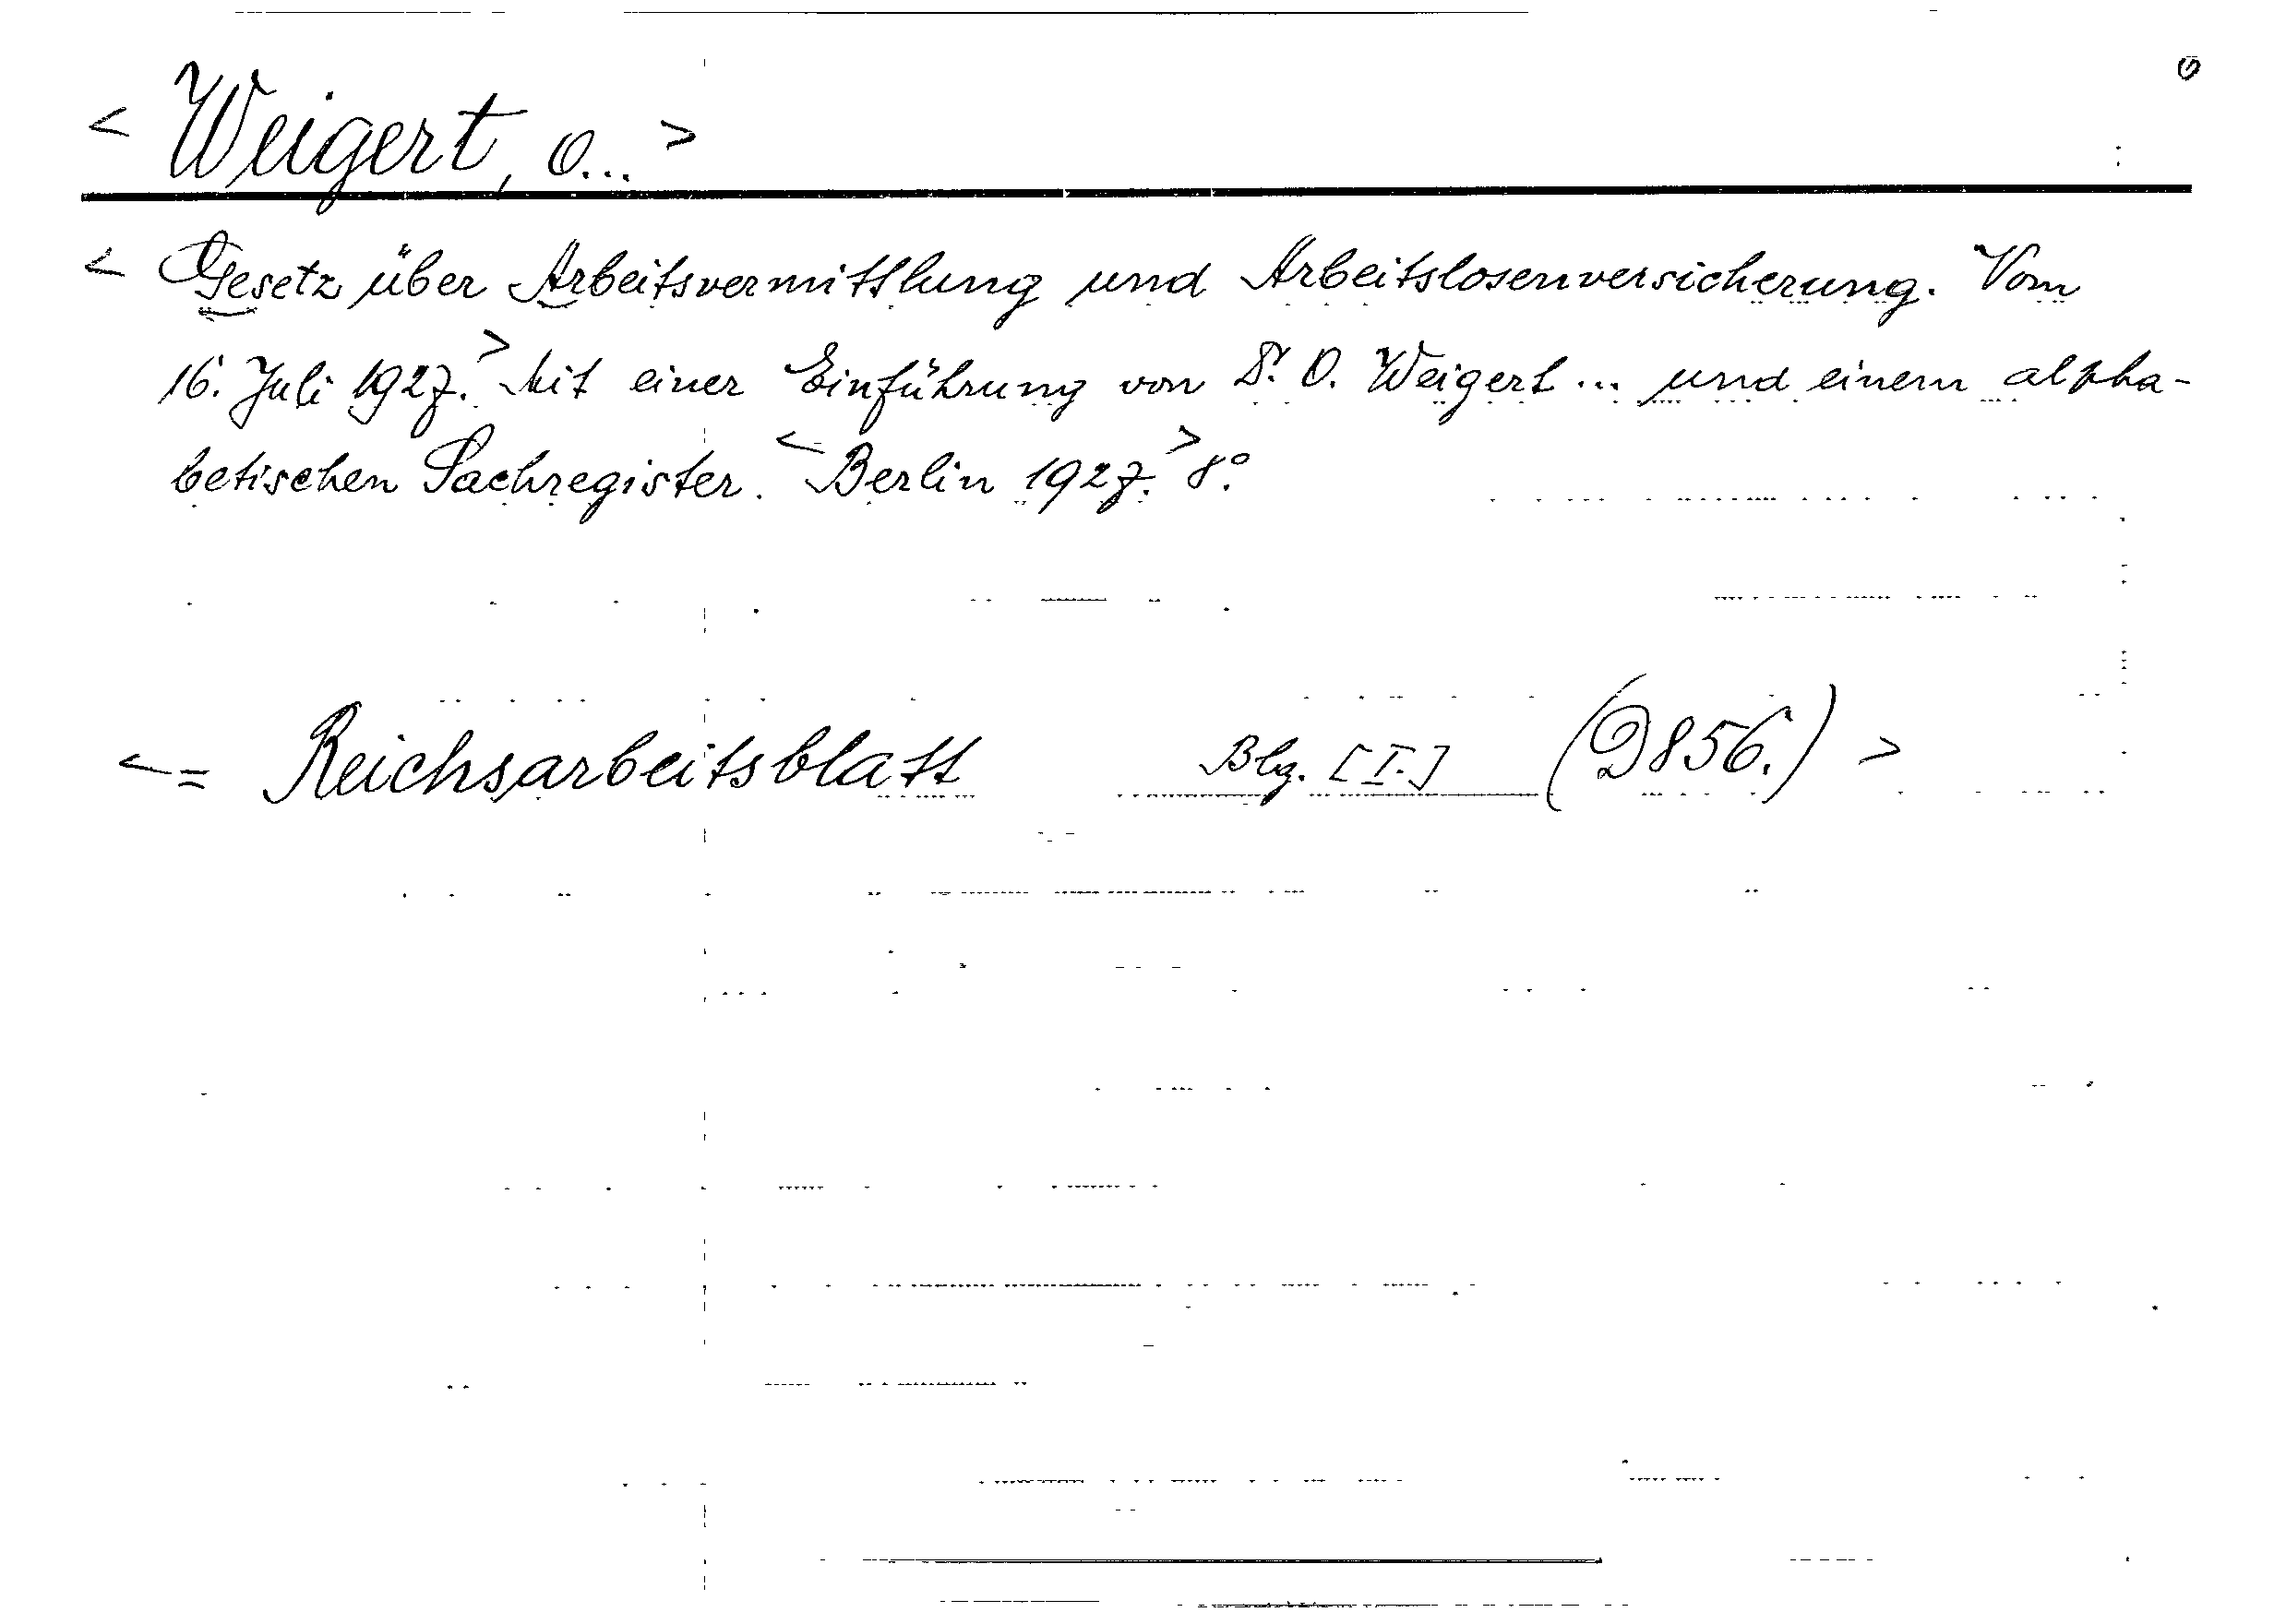 < Weigert, O... >
< Gesetz über Arbeitsvermittlung und Arbeitslosenversicherung. Vom
16. Juli 1927.> Mit einer Einführung von Dr. O. Weigert ... und einem alpha-
betischen Sachregister. < Berlin 1927.> 8°.
< = Reichsarbeitsblatt Blg. [I.] (D856.) >